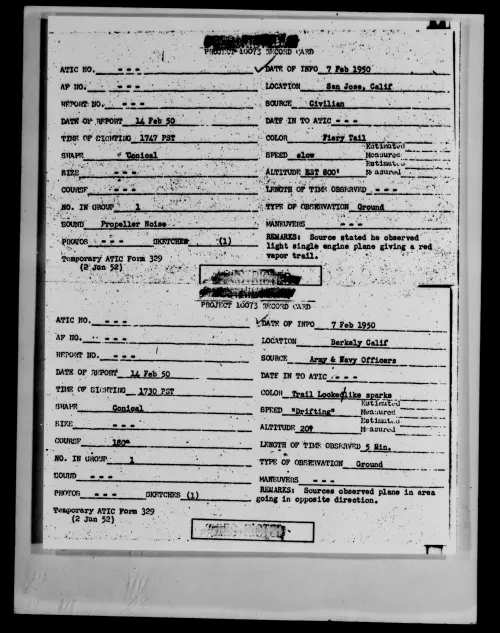 PROJECT 10073 RECORD CARD
ATIC NO. - - -
DATE OF INFO 7 Feb 1950
AF NO. - - -
LOCATION San Jose, Calif
REPORT NO. - - -
SOURCE Civilian
DATE OF REPORT 14 Feb 50
DATE IN TO ATIC - - -
TIME OF SIGHTING 1747 PST
COLOR Fiery Tail
SHAPE Conical
SPEED slow
Estimated
Measured
SIZE - - -
ALTITUDE EST 800'
Estimated
Measured
COURSE - - -
LENGTH OF TIME OBSERVED - - -
NO. IN GROUP 1
TYPE OF OBSERVATION Ground
SOUND Propeller Noise
MANEUVERS - - -
PHOTOS - - - SKETCHES (1)
REMARKS: Source stated he observed
light single engine plane giving a red
vapor trail.
Temporary ATIC Form 329
(2 Jan 52)
PROJECT 10073 RECORD CARD
ATIC NO. - - -
DATE OF INFO 7 Feb 1950
AF NO. - - -
LOCATION Berkely Calif
REPORT NO. - - -
SOURCE Army & Navy Officers
DATE OF REPORT 14 Feb 50
DATE IN TO ATIC - - -
TIME OF SIGHTING 1730 PST
COLOR Trail Looked like sparks
SHAPE Conical
SPEED "Drifting"
Estimated
Measured
SIZE - - -
ALTITUDE
Estimated
Measured
COURSE 180°
LENGTH OF TIME OBSERVED 5 Min.
NO. IN GROUP 1
TYPE OF OBSERVATION Ground
SOUND - - -
MANEUVERS - - -
PHOTOS - - - SKETCHES (1)
REMARKS: Sources observed plane in area
going in opposite direction.
Temporary ATIC Form 329
(2 Jan 52)